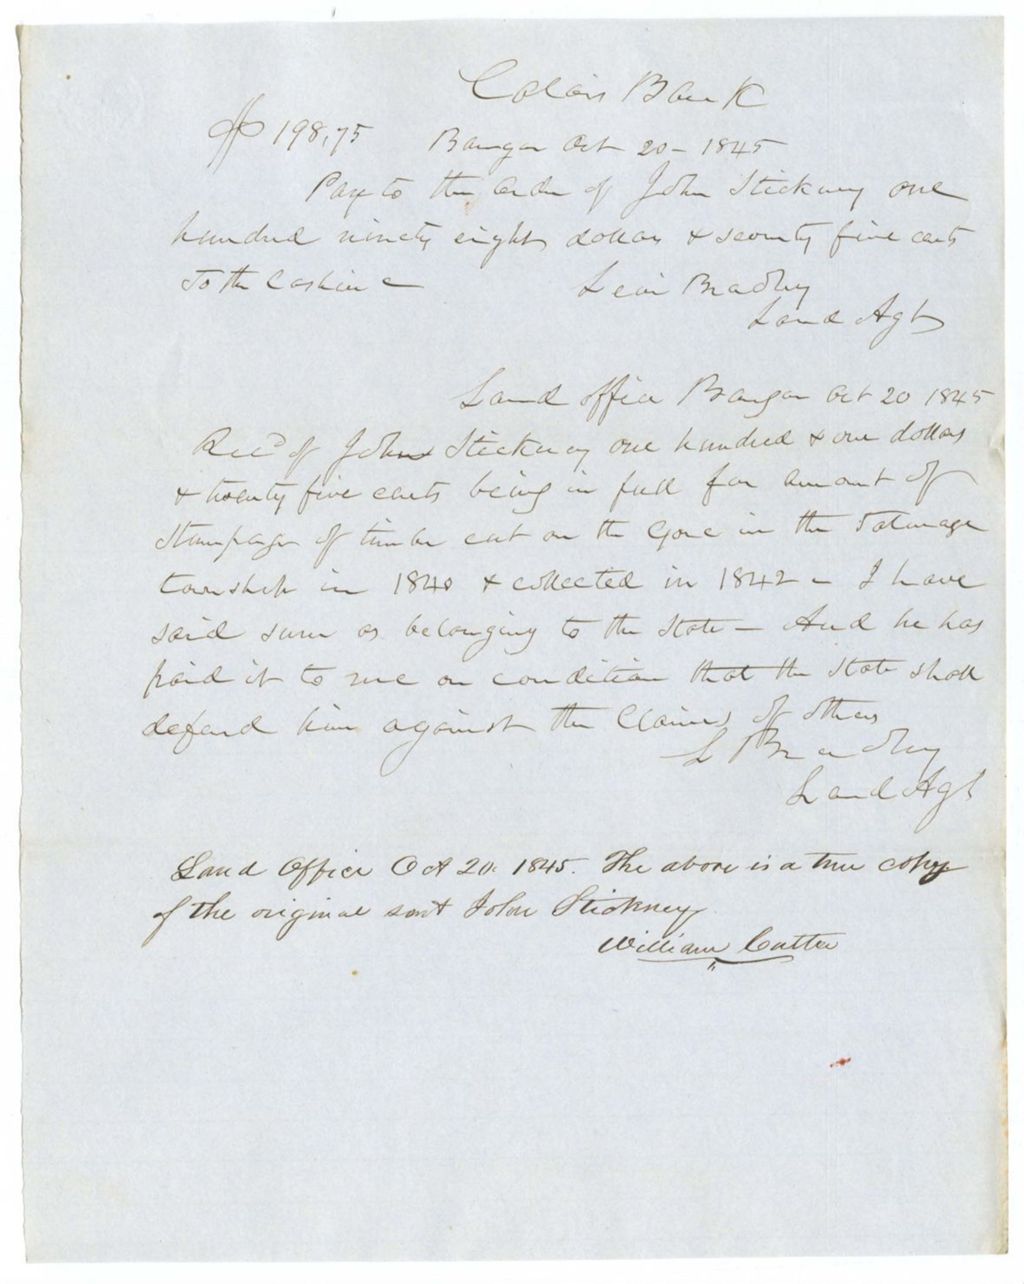 Calais Bank
$198,75 Bangor Oct 20 - 1845
Pay to the order of John Stickney one
hundred ninety eight dollars & seventy five cents
To the Cashier Levi Bradley
Land Agt
Land office Bangor Oct 20 1845
Recd of John Stickney one hundred & one dollars
& twenty five cents being in full for amount of
Stumpage of timber cut on the Gore in the Talmage
township in 1840 & collected in 1842 - I have
said sum as belonging to the State - And he has
paid it to me on condition that the State shall
defend him against the Claims of others
L Bradley
Land Agt
Land Office Oct 20. 1845. The above is a true copy
of the original sent John Stickney
William Cutter